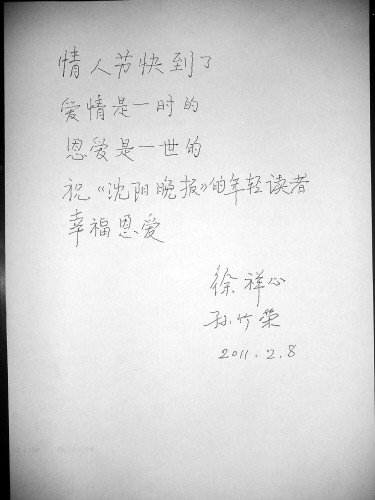 情人节快到了
爱情是一时的
恩爱是一世的
祝《沈阳晚报》的年轻读者
幸福恩爱
徐祥心
孙竹荣
2011.2.8